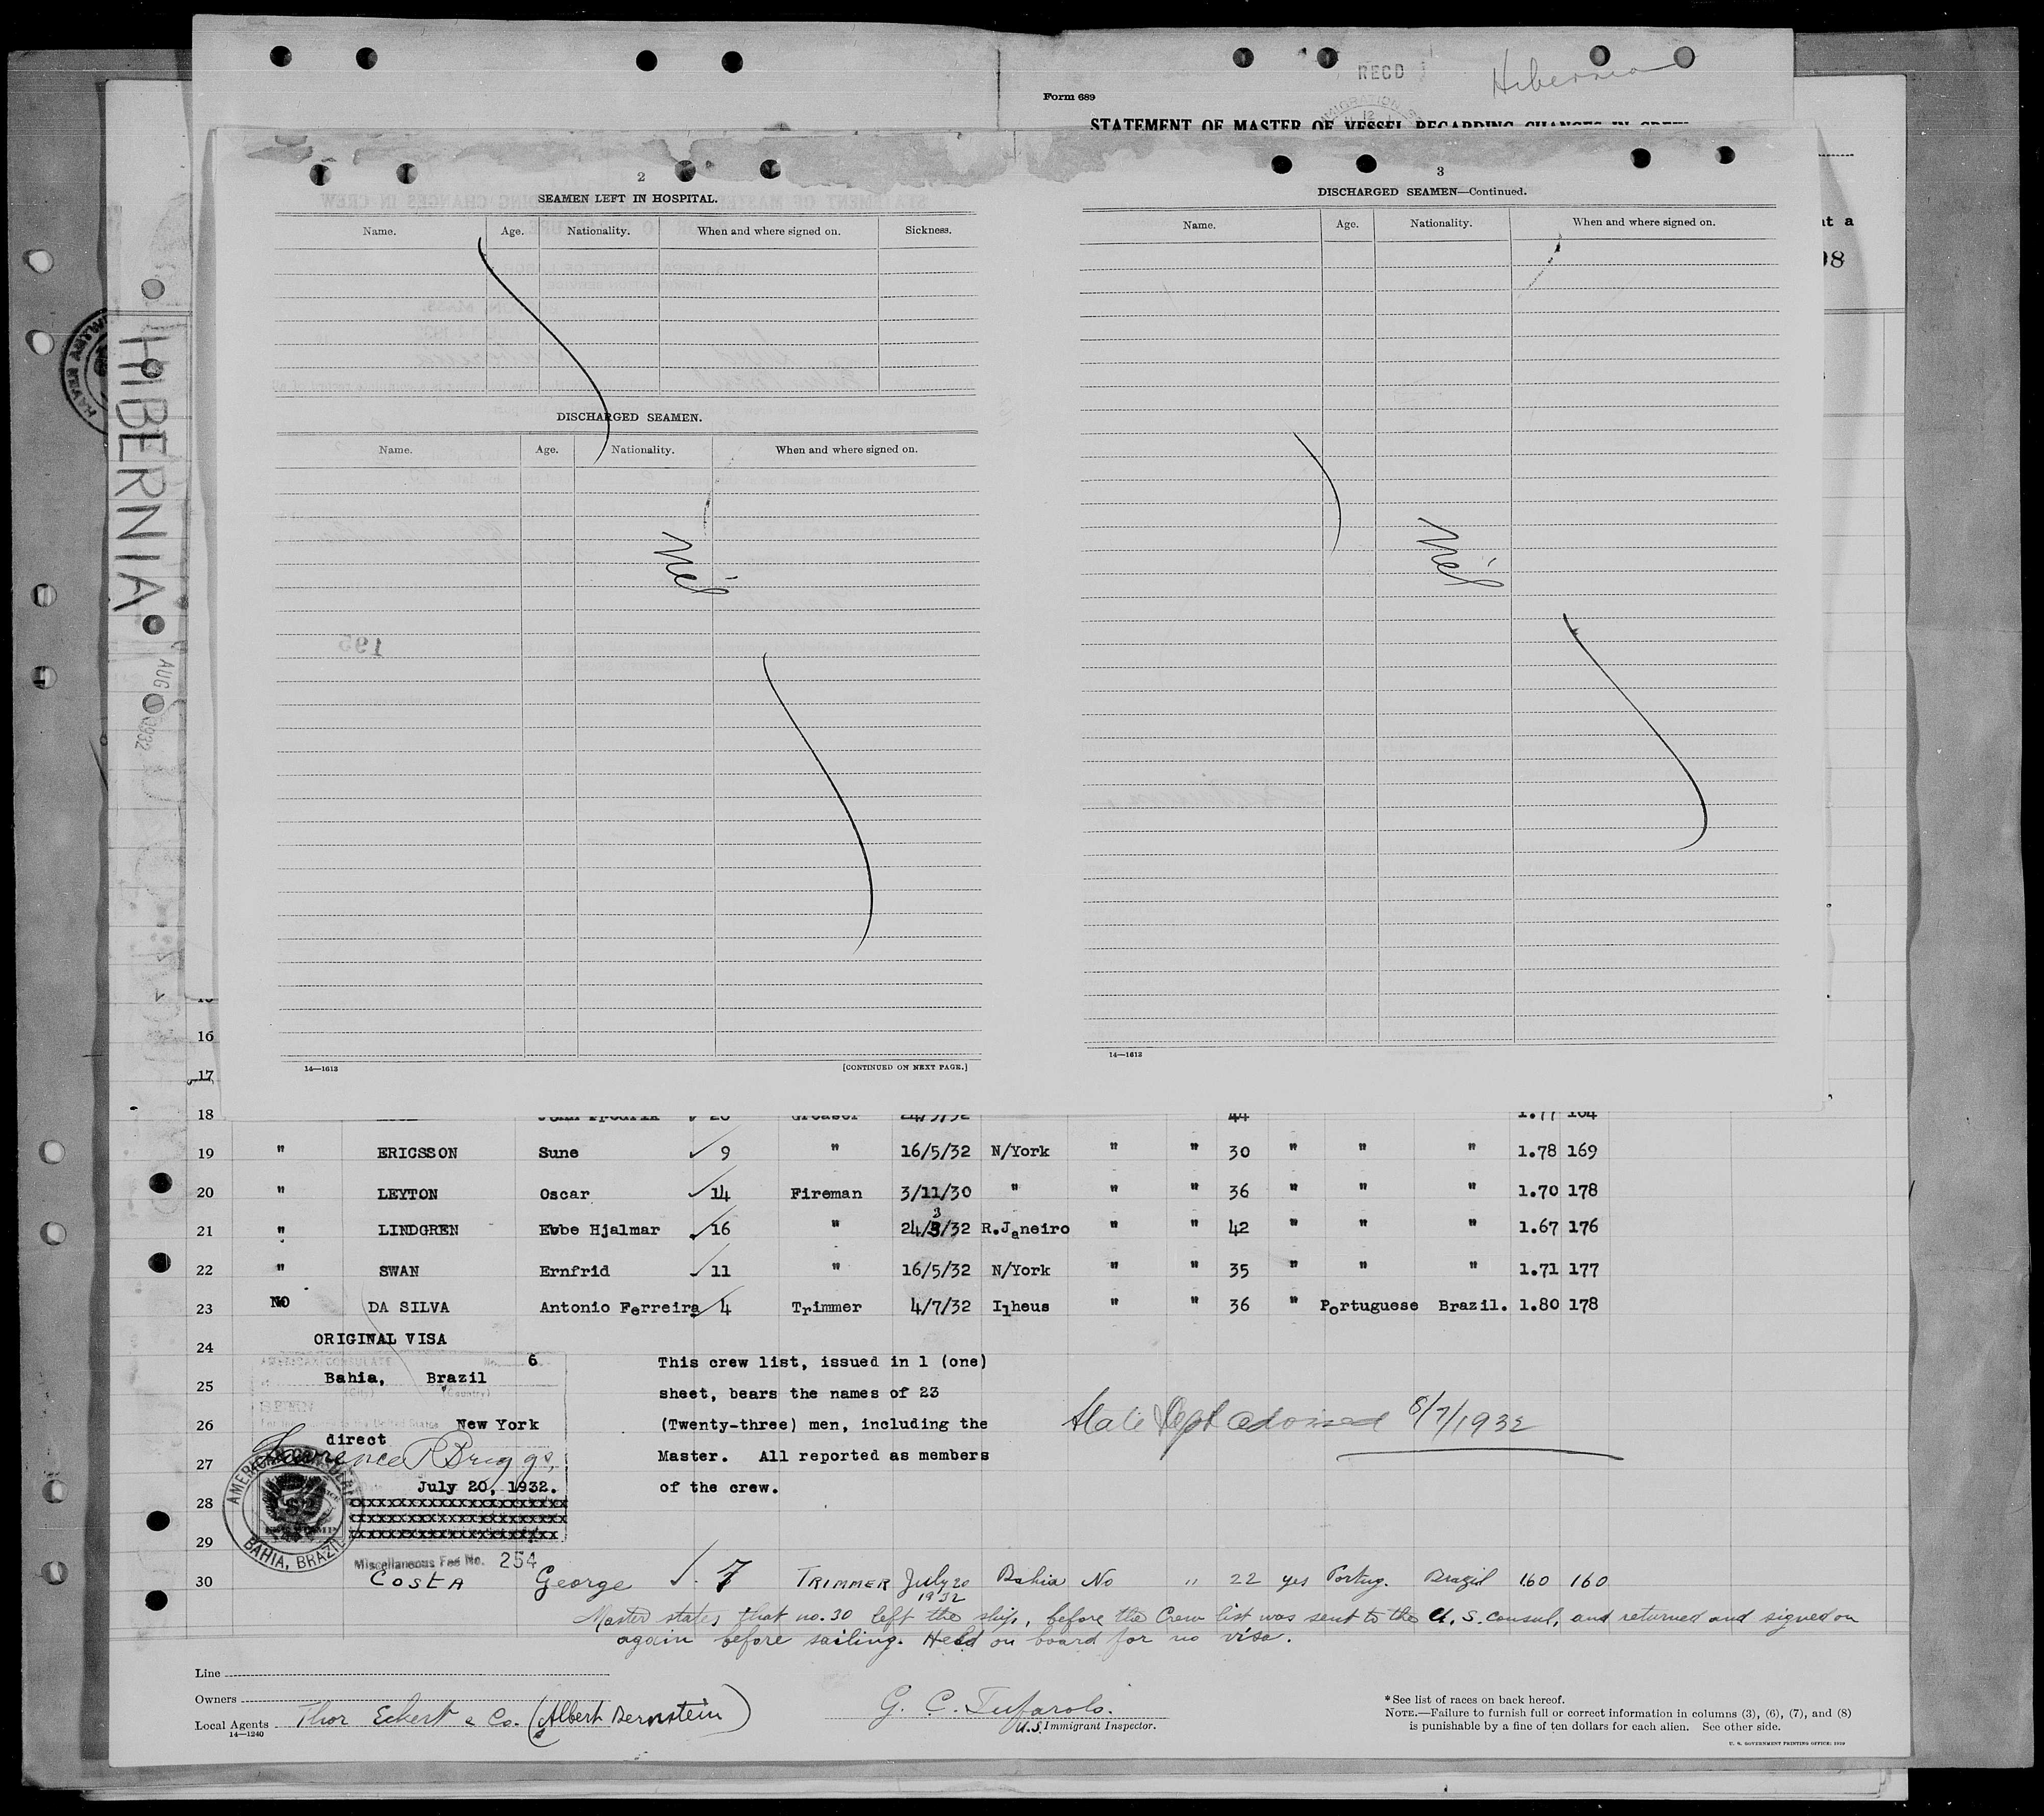 RECD
Hibernia
Form 689
STATEMENT OF MASTER OF VESSEL REGARDING CHANGES IN CREW
2
SEAMEN LEFT IN HOSPITAL.
Name. Age. Nationality. When and where signed on. Sickness.
DISCHARGED SEAMEN.
Name. Age. Nationality. When and where signed on.
Nil
195
14—1613 [CONTINUED ON NEXT PAGE.]
3
DISCHARGED SEAMEN—Continued.
Name. Age. Nationality. When and where signed on.
Nil
14—1613
HIBERNIA
AUG 1932
16
17
18 John Fredrik 20 Greaser 24/3/32 44 1.77 164
19 " ERICSSON Sune ✓ 9 " 16/5/32 N/York " " 30 " " " 1.78 169
20 " LEYTON Oscar ✓ 14 Fireman 3/11/30 " " " 36 " " " 1.70 178
21 " LINDGREN Ebbe Hjalmar ✓ 16 " 24/3/32 R.Janeiro " " 42 " " " 1.67 176
22 " SWAN Ernfrid ✓ 11 " 16/5/32 N/York " " 35 " " " 1.71 177
23 NO DA SILVA Antonio Ferreira ✓ 4 Trimmer 4/7/32 Ilheus " " 36 " Portuguese Brazil. 1.80 178
24 ORIGINAL VISA
AMERICAN CONSULATE No. 6
25 Bahia, Brazil
(City) (Country)
SEEN
26 For the United States New York
direct
27 Clarence R Briggs,
28 July 20, 1932.
29
AMERICAN CONSULATE
BAHIA, BRAZIL
Miscellaneous Fee No. 254
This crew list, issued in 1 (one)
sheet, bears the names of 23
(Twenty-three) men, including the
Master. All reported as members
of the crew.
State Dept advised 8/7/1932
30 COSTA George ✓ 7 TRIMMER July 20 1932 Bahia No " 22 yes Portug. Brazil 1.60 160
Master states that no. 30 left the ship, before the Crew list was sent to the U.S. Consul, and returned and signed on
again before sailing. Held on board for no visa.
Line
Owners
Local Agents Thor Eckert & Co. (Albert Bernstein)
14—1240
G. C. Tufarolo.
U.S. Immigrant Inspector.
*See list of races on back hereof.
NOTE.—Failure to furnish full or correct information in columns (3), (6), (7), and (8)
is punishable by a fine of ten dollars for each alien. See other side.
U. S. GOVERNMENT PRINTING OFFICE: 1929